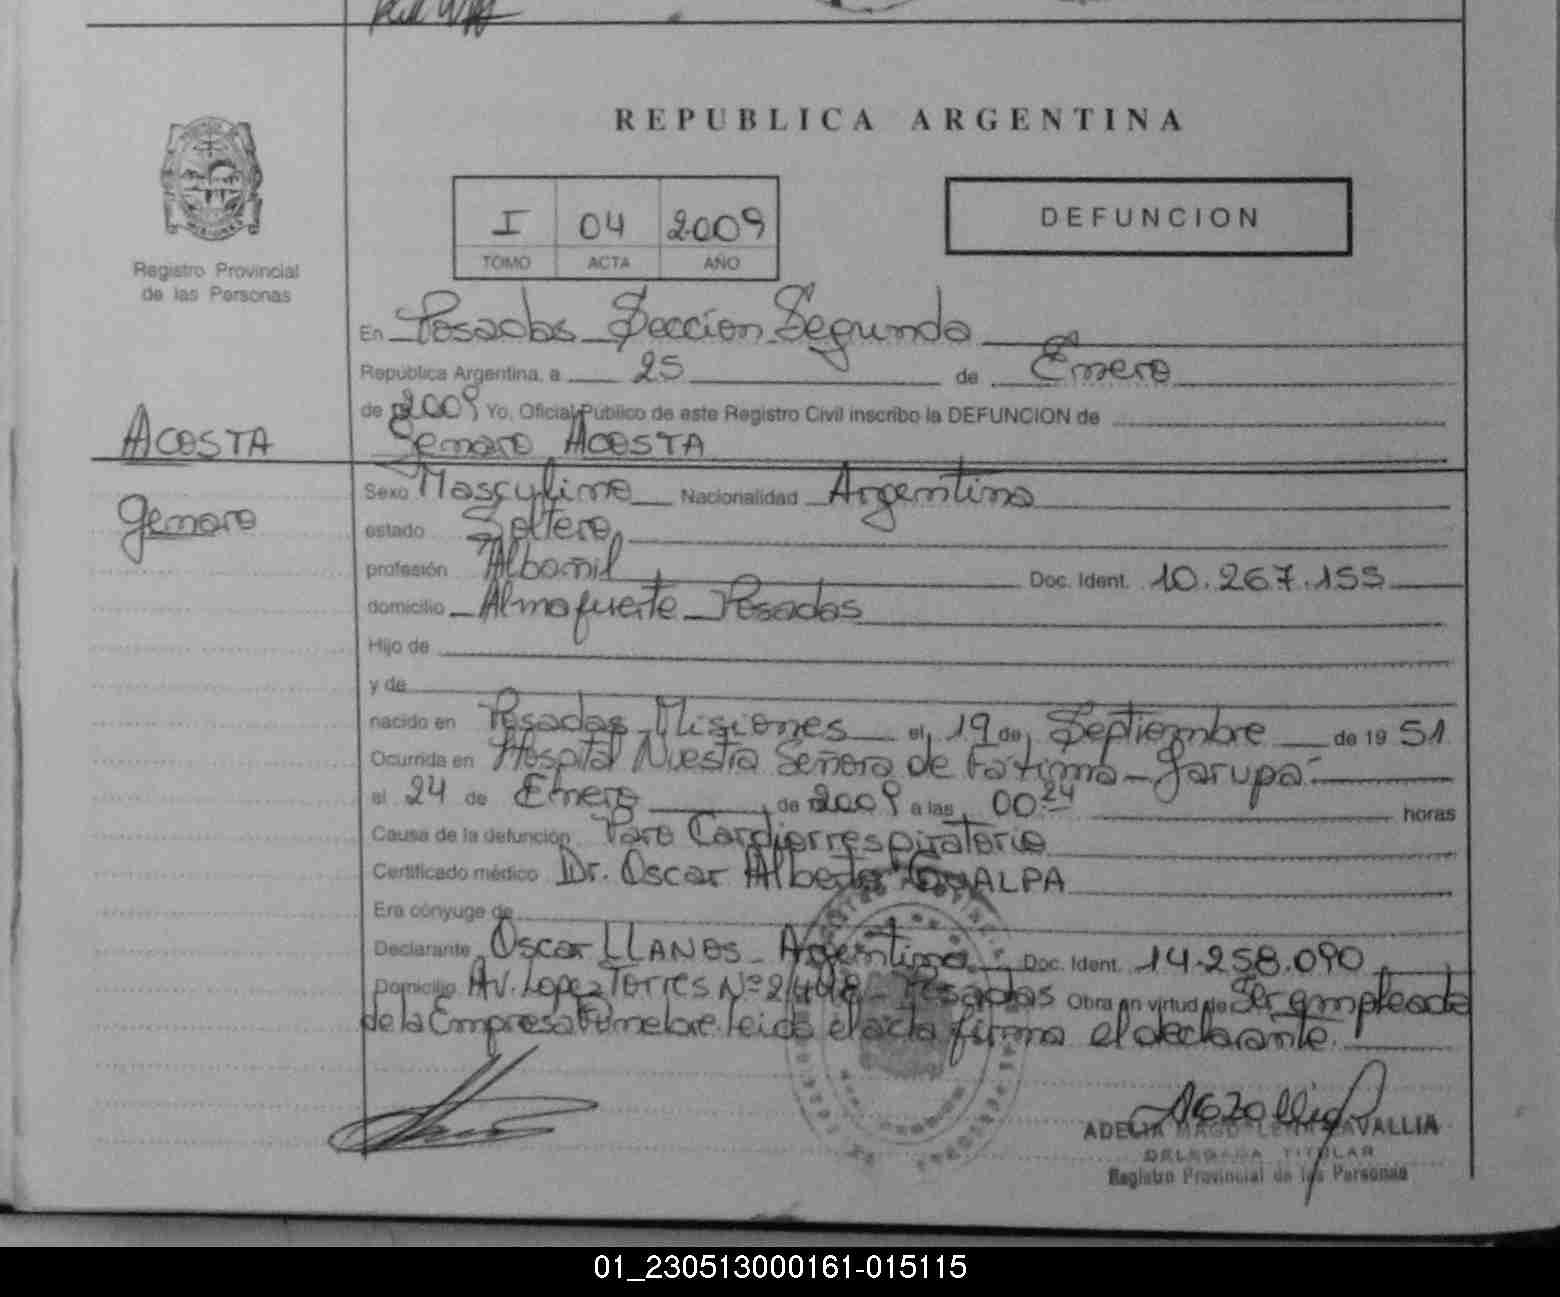 REPUBLICA ARGENTINA
I 04 2009
TOMO ACTA AÑO
DEFUNCION
Registro Provincial
de las Personas
En Posadas Seccion Segunda
República Argentina, a 25 de Enero
de 2009 Yo, Oficial Público de este Registro Civil inscribo la DEFUNCION de
Genaro ACOSTA
ACOSTA
Genaro
Sexo Masculino Nacionalidad Argentina
estado Soltero
profesión Albañil Doc. Ident. 10.267.155
domicilio Almafuerte - Posadas
Hijo de
y de
nacido en Posadas - Misiones el 19 de Septiembre de 19 51
Ocurrida en Hospital Nuestra Señora de Fátima - Garupá
el 24 de Enero de 2009 a las 00:24 horas
Causa de la defunción Paro Cardiorrespiratorio
Certificado médico Dr. Oscar Alberto GUALPA
Era cónyuge de
Declarante Oscar LLANOS - Argentino Doc. Ident. 14.258.090
Domicilio Av. Lopez Torres Nº 2448 - Posadas Obra en virtud de Ser empleado
de la Empresa leida el acta firma el declarante.
ADELIA MAGDALENA
DELEGADA TITULAR
Registro Provincial de las Personas
01_230513000161-015115